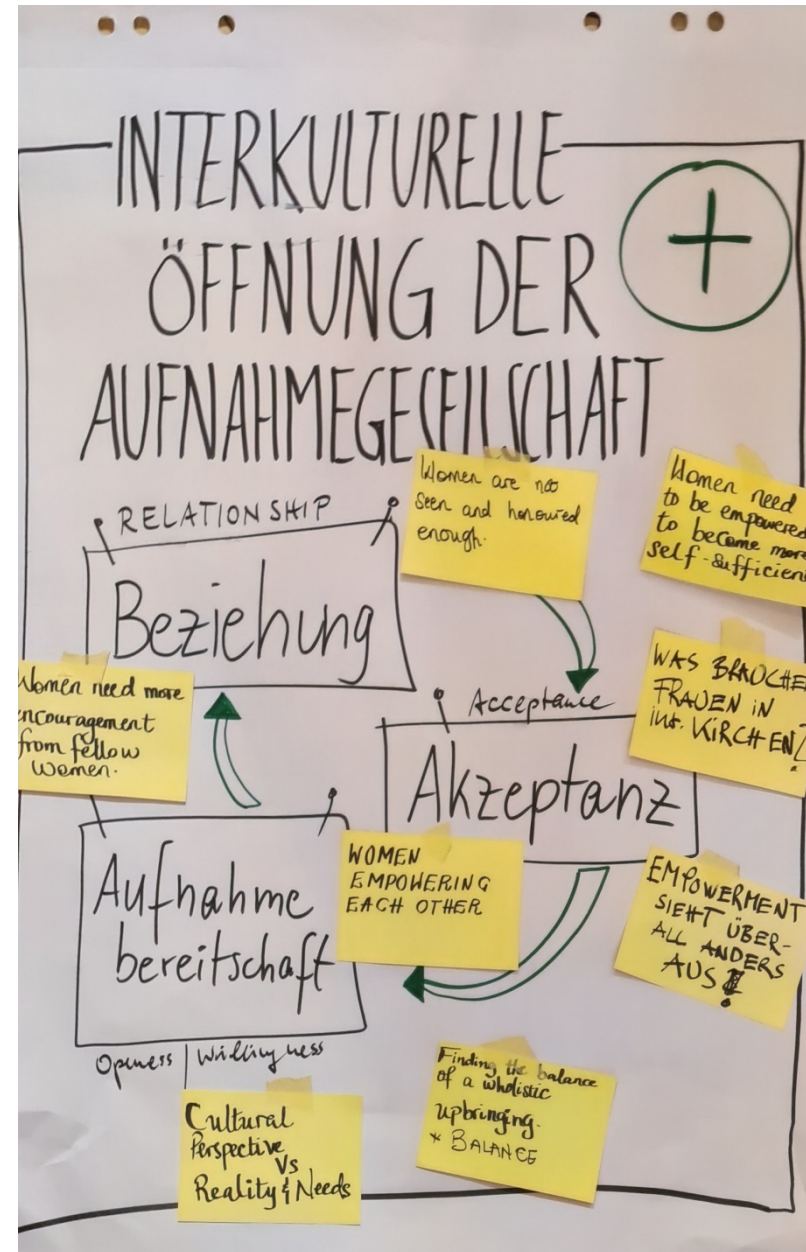 INTERKULTURELLE
ÖFFNUNG DER
AUFNAHMEGESELLSCHAFT
+
RELATIONSHIP
Beziehung
Women are not
seen and honoured
enough.
Women need
to be empowered
to become more
self-sufficien
Women need more
encouragement
from fellow
women.
Acceptance
Akzeptanz
WAS BRAUCHE
FRAUEN IN
int. KIRCHEN?
Aufnahme
bereitschaft
Openess | Willingness
WOMEN
EMPOWERING
EACH OTHER
EMPOWERMENT
SIEHT ÜBER-
ALL ANDERS
AUS!
Cultural
Perspective
Vs
Reality & Needs
Finding the balance
of a wholistic
upbringing.
* BALANCE